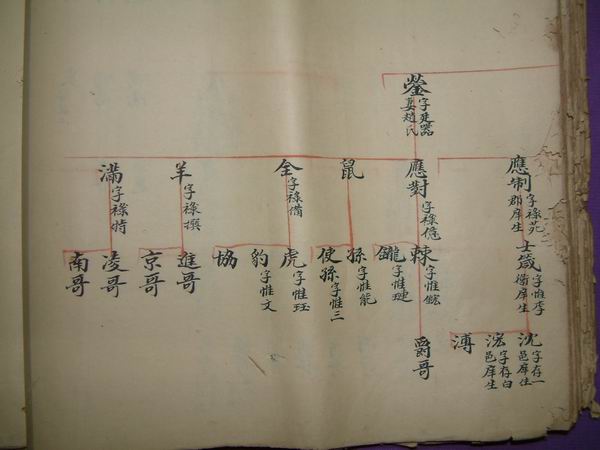 應制 字祿苑 郡庠生
士箴 字惟季 衛庠生
沈 字存一 邑庠生
浤 字存白 邑庠生
溥
鎣 字廷器 娶趙氏
應對 字祿億
棘 字惟鋐
爵哥
鏙 字惟璉
鼠
孫 字惟能
使孫 字惟三
全 字祿備
虎 字惟珏
豹 字惟文
協
羊 字祿撰
進哥
京哥
滿 字祿特
凌哥
南哥